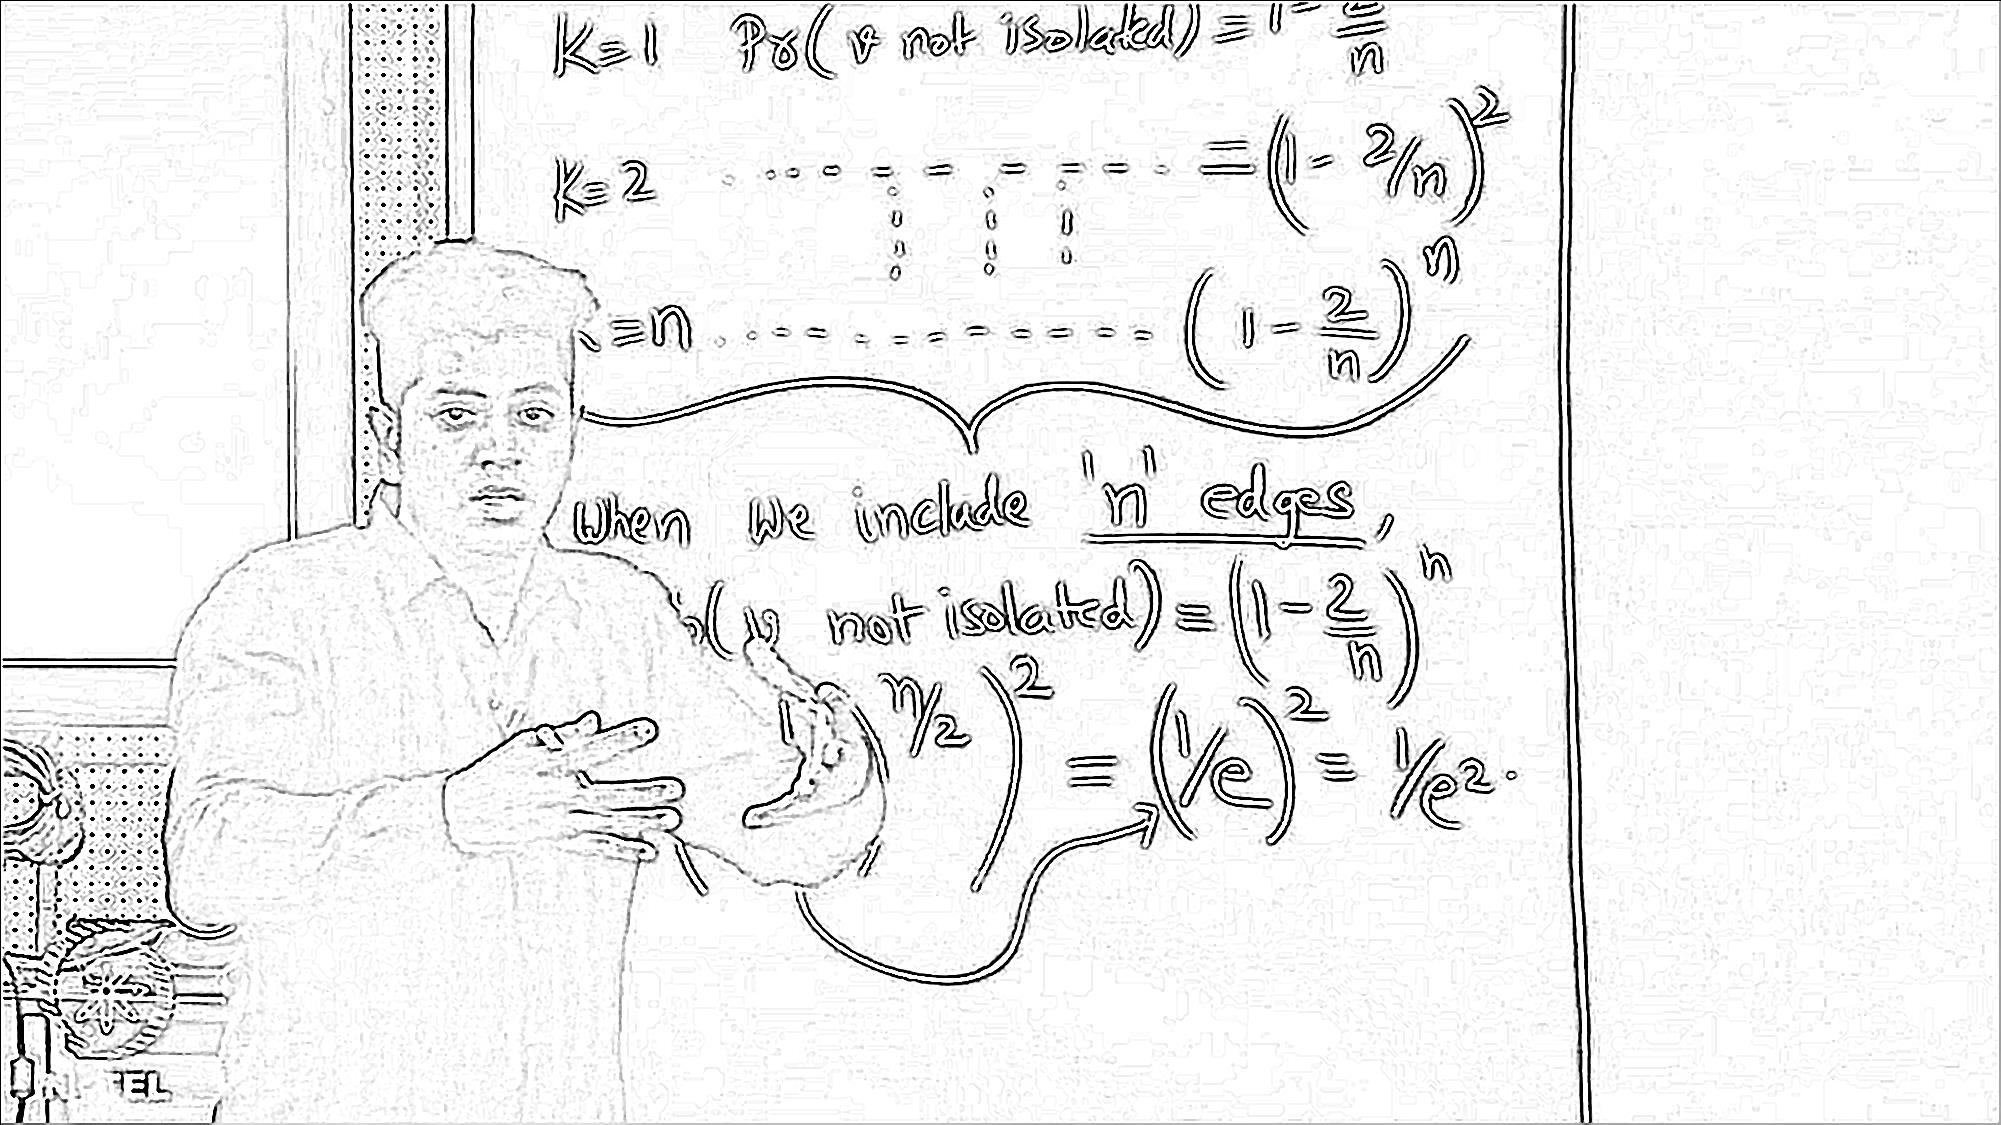 K=1 Pr(v not isolated) ≡ 1- 2/n
K=2 ≡ (1- 2/n)^2
≡n (1- 2/n)^n
When We include 'n' edges,
(v not isolated) ≡ (1- 2/n)^n
n/2)^2 ≡ (1/e)^2 ≡ 1/e^2.